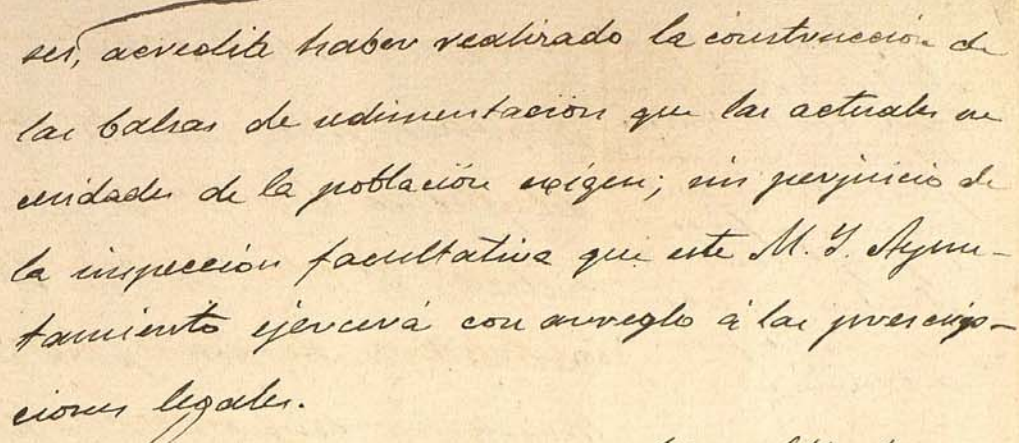 ses, acredite haber realizado la construcción de
las balsas de sedimentacion que las actuales ne
cesidades de la población exigen; sin perjuicio de
la inspección facultativa que este M. I. Ayun-
tamiento ejercerá con arreglo á las prescrip-
ciones legales.